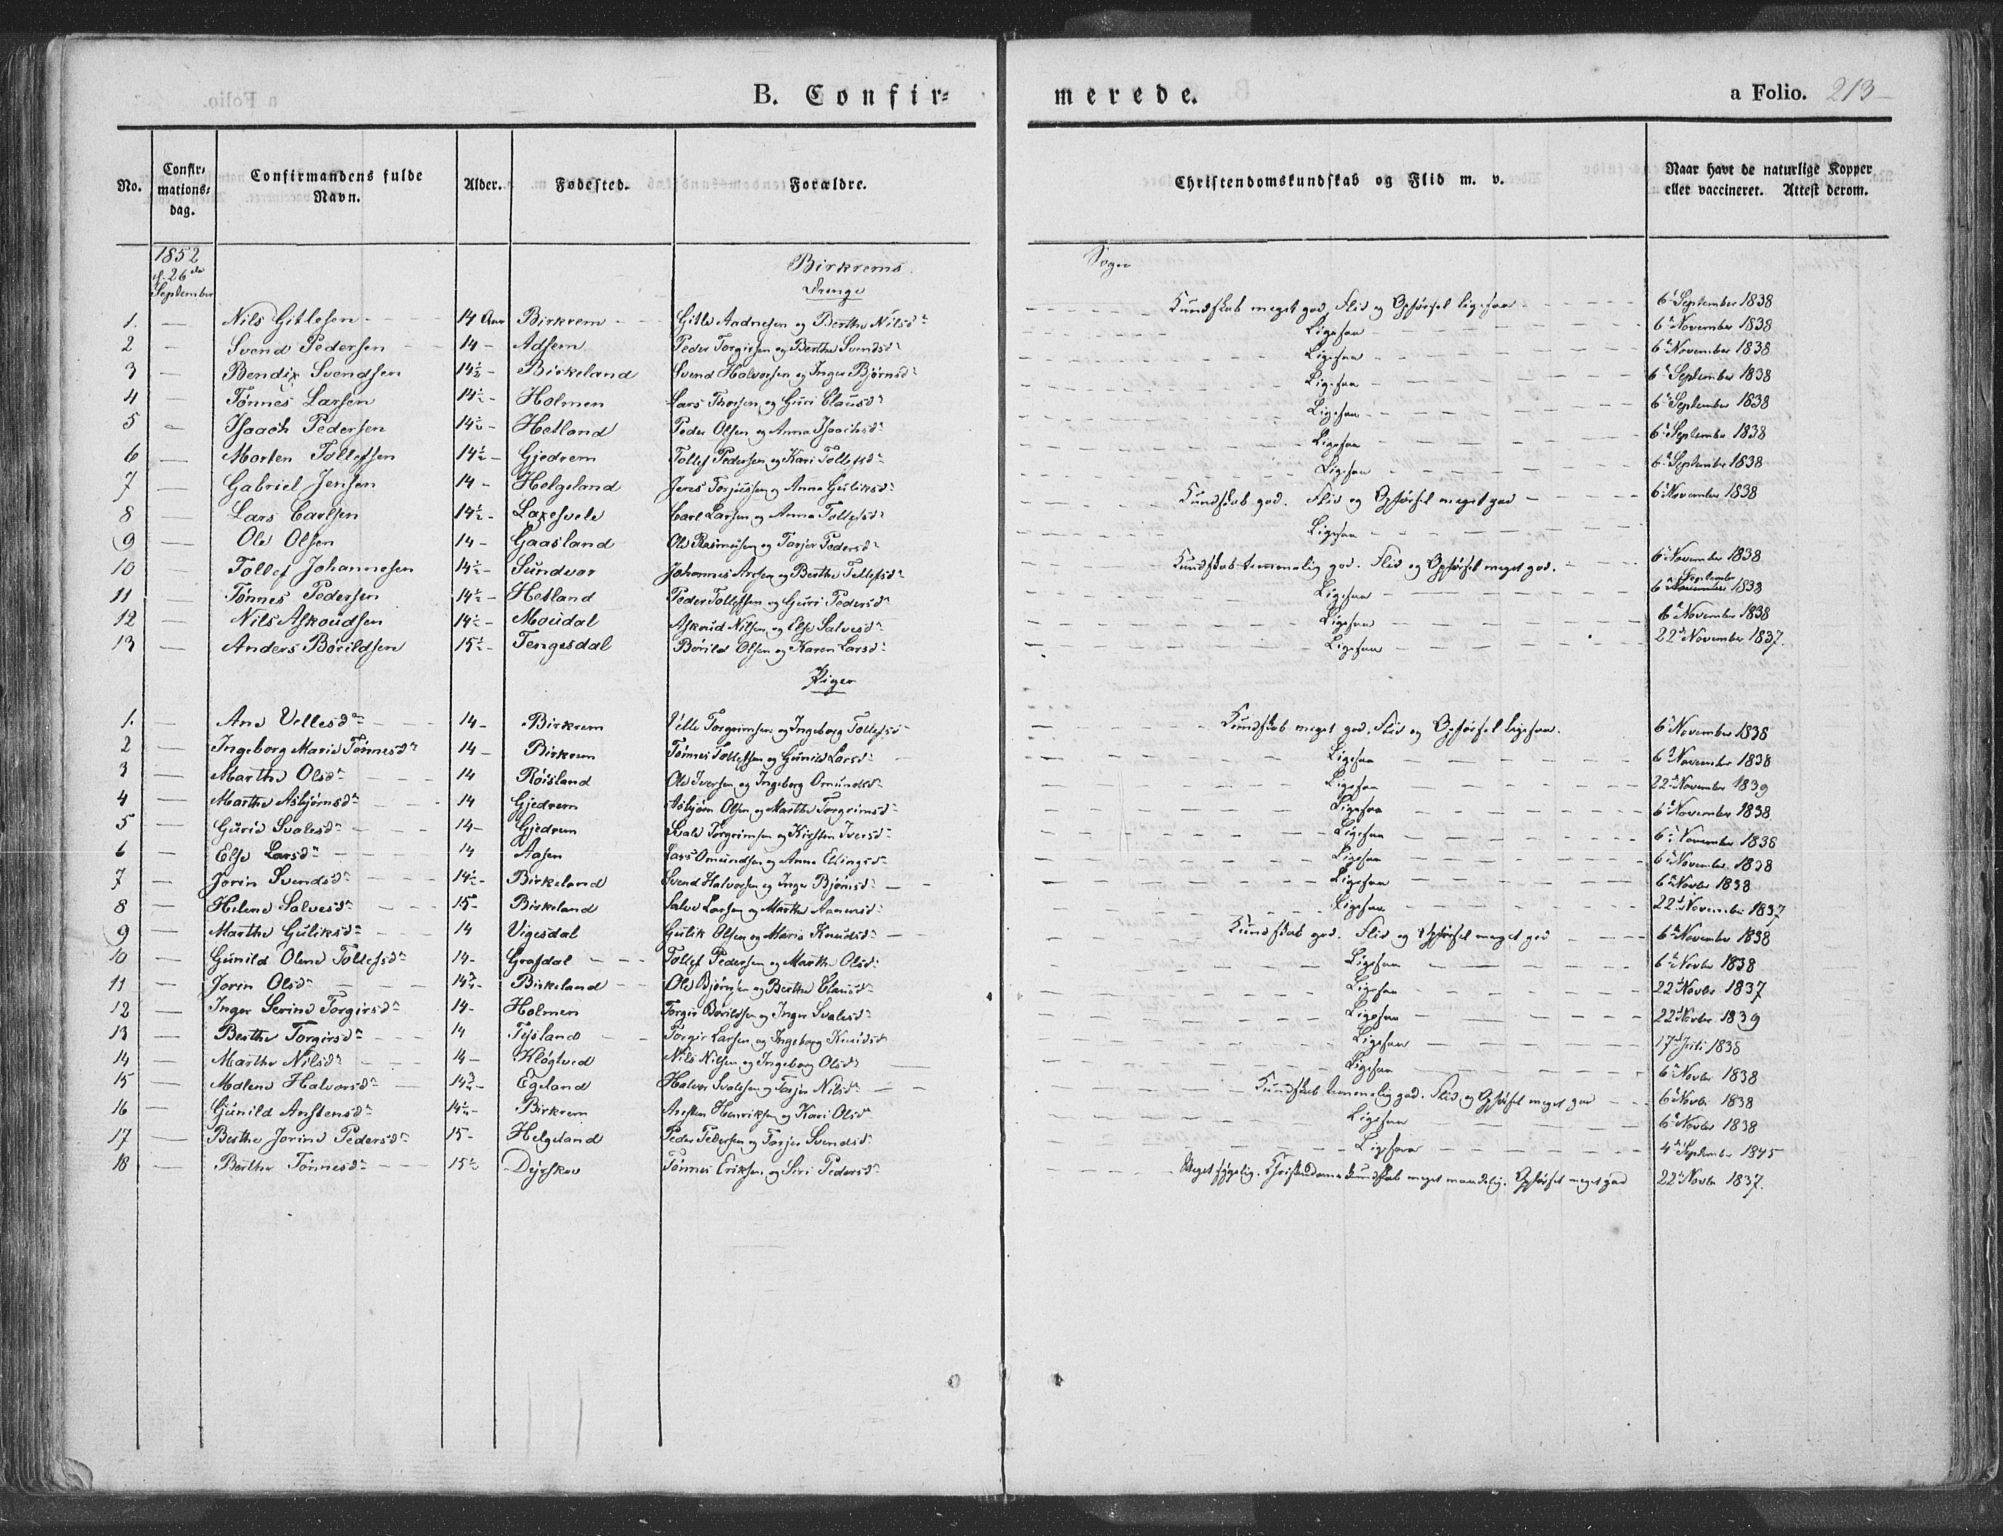 B. Confir- merede. a Folio. 213
No. Confirmations- dag. Confirmandens fulde Navn. Alder. Fødested. Forældre. Christendomskundskab og Flid m. v. Naar havt de naturlige Kopper eller vaccineret. Attest derom.
1852
d. 26de September
Birkrems Sogn
Drenge
1. — Nils Gitlesen 14 Aar Birkrem Gitle Aadnesen og Berthe Nilsdr Kundskab meget god, Flid og Opførsel ligesaa 6te September 1838
2 — Svend Pedersen 14 - Adsem Peder Torgersen og Berthe Svendsdr Ligesaa 6te November 1838
3 — Bendix Svendsen 14½ - Birkeland Svend Halvorsen og Inger Bjørnsdr Ligesaa 6te November 1838
4 — Tønnes Larsen 14½ - Holmen Lars Thorsen og Guri Clausdr Ligesaa 6te September 1838
5 — Isaach Pedersen 14½ - Hetland Peder Olsen og Anna Isaachsdr Ligesaa 6te September 1838
6 — Morten Tollefsen 14½ - Gjedrem Tollef Pedersen og Kari Tollefsdr Ligesaa 6te September 1838
7 — Gabriel Jensen 14 - Helgeland Jens Torjussen og Anna Guliksdr Ligesaa 6te September 1838
8 — Lars Carlsen 14½ - Laxesvele Carl Larsen og Anna Tollefsdr Kundskab god. Flid og Opførsel meget god 6te November 1838
9 — Ole Olsen 14 - Gaasland Ole Rasmusen og Tarjer Pedersdr Ligesaa
10 — Tollef Johannesen 14½ - Sundvor Johannes Aresen og Berthe Tollefsdr Kundskab temmelig god. Flid og Opførsel meget god. 6te November 1838
11 — Tønnes Pedersen 14½ - Hetland Peder Tollefsen og Guri Pedersdr Ligesaa 6te September 1838
12 — Nils Askoudsen 14½ - Moudal Askoud Nilsen og Else Salvesdr Ligesaa 6te November 1838
13 — Anders Børildsen 15½ - Tengesdal Børild Olsen og Karen Larsdr Ligesaa 22de November 1837.
Piger
1. — Ane Vellesdr 14 - Birkrem Velle Torgrimsen og Ingeborg Tollefsdr Kundskab meget god. Flid og Opførsel ligesaa. 6te November 1838
2 — Ingeborg Marie Tønnesdr 14 - Birkrem Tønnes Tollefsen og Gunild Larsdr Ligesaa 6te November 1838
3 — Marthe Olsdr 14 Røisland Ole Iversen og Ingeborg Omundsdr Ligesaa 22de November 1839
4 — Marthe Asbjørnsdr 14 Gjedrem Asbjørn Olsen og Marthe Torgrimsdr Ligesaa 6te November 1838
5 — Gurid Svalesdr 14 - Gjedrem Svale Torgrimsen og Kirsten Iversdr Ligesaa 6te November 1838
6 — Else Larsdr 14 Aasen Lars Omundsen og Anna Ellingsdr Ligesaa 6te November 1838
7 — Jorin Svendsdr 14½ - Birkeland Svend Halvorsen og Inger Bjørnsdr Ligesaa 6te Novbr 1838
8 — Helene Salvesdr 15 - Birkeland Salve Larsen og Marthe Aanensdr Ligesaa 22de November 1837
9 — Marthe Guliksdr 14 Vigesdal Gulik Olsen og Maria Knudsdr Kundskab god. Flid og Opførsel meget god 6te November 1838
10 — Gunild Olene Tollefsdr 14 - Grafdal Tollef Pedersen og Marthe Olsdr Ligesaa 6te Novbr 1838
11 — Jorin Olsdr 14¾ - Birkeland Ole Bjørnsen og Berthe Clausdr Ligesaa 22de Novbr 1837
12 — Inger Serine Torgersdr 14 - Holmen Torger Børildsen og Inger Svalesdr Ligesaa 22de Novbr 1839
13 — Berthe Torgersdr 14 Tjsland Torger Larsen og Ingeborg Knudsdr Ligesaa 17de Juli 1838
14 — Marthe Nilsdr 14 - Kløgtved Nils Nilsen og Ingeborg Olsdr Ligesaa 6te Novbr 1838
15 — Malene Halvorsdr 14¾ - Egeland Halvor Svalesen og Tarjer Nilsdr Kundskab temmelig god. Flid og Opførsel meget god 6te Novbr 1838
16 — Gunild Anstensdr 14½ - Birkrem Ansten Henriksen og Kari Olsdr Ligesaa 6te Novbr 1838
17 — Berthe Jorine Pedersdr 15 - Helgeland Peder Pedersen og Tarjer Svendsdr Ligesaa 4de September 1845
18 — Berthe Tønnesdr 15½ Dyrskov Tønnes Eriksen og Siri Pedersdr Meget sygelig. Christendomskundskab meget maadelig. Opførsel meget god 22de Novbr 1837.